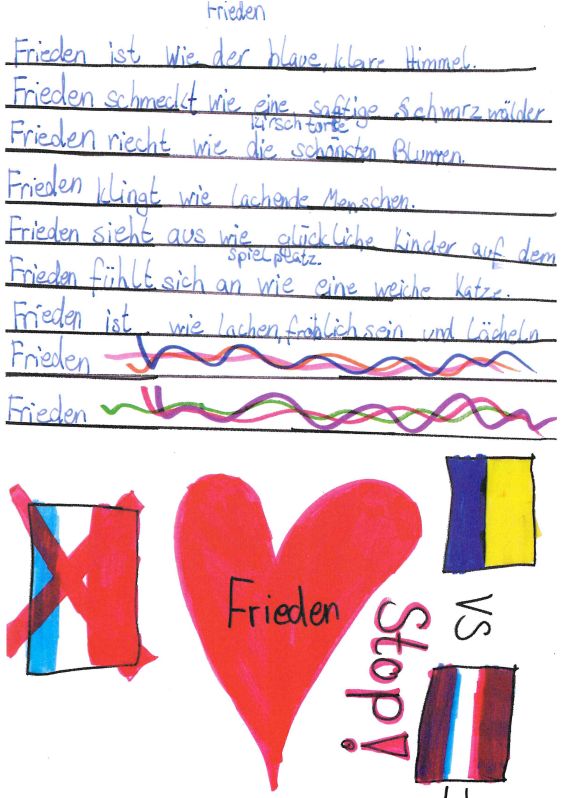 Frieden
Frieden ist wie der blaue, klare Himmel.
Frieden schmeckt wie eine saftige Schwarzwälder
kirschtorte
Frieden riecht wie die schönsten Blumen.
Frieden klingt wie lachende Menschen.
Frieden sieht aus wie glückliche Kinder auf dem
spielplatz.
Frieden fühlt sich an wie eine weiche Katze.
Frieden ist wie lachen, fröhlich sein und Lächeln
Frieden
Frieden
Frieden
VS
Stop!